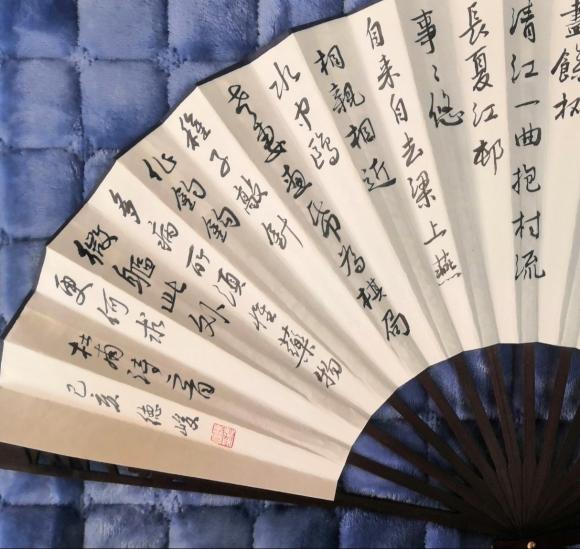 盡餘杯
清江一曲抱村流
長夏江邨
事〻悠
自来自去梁上燕
相親相近
水中鸥
老妻畫帋為棋局
稚子敲針
作釣鈎
多病所須惟藥物
微軀此外
更何求
杜甫詩二首
己亥 德峻